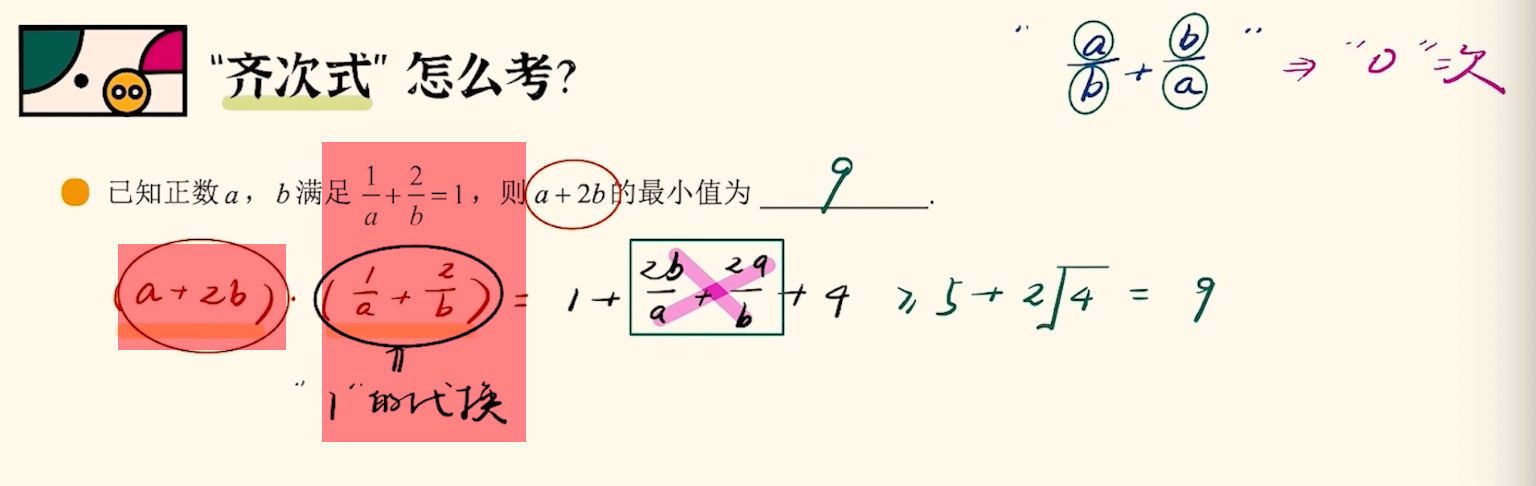 “齐次式”怎么考?
“a/b + b/a” ⇒ “0”次
已知正数a，b满足 1/a + 2/b = 1，则 a+2b 的最小值为 9 .
(a+2b)·(1/a + 2/b) = 1 + 2b/a + 2a/b + 4 ≥ 5 + 2√4 = 9
“1”的代换